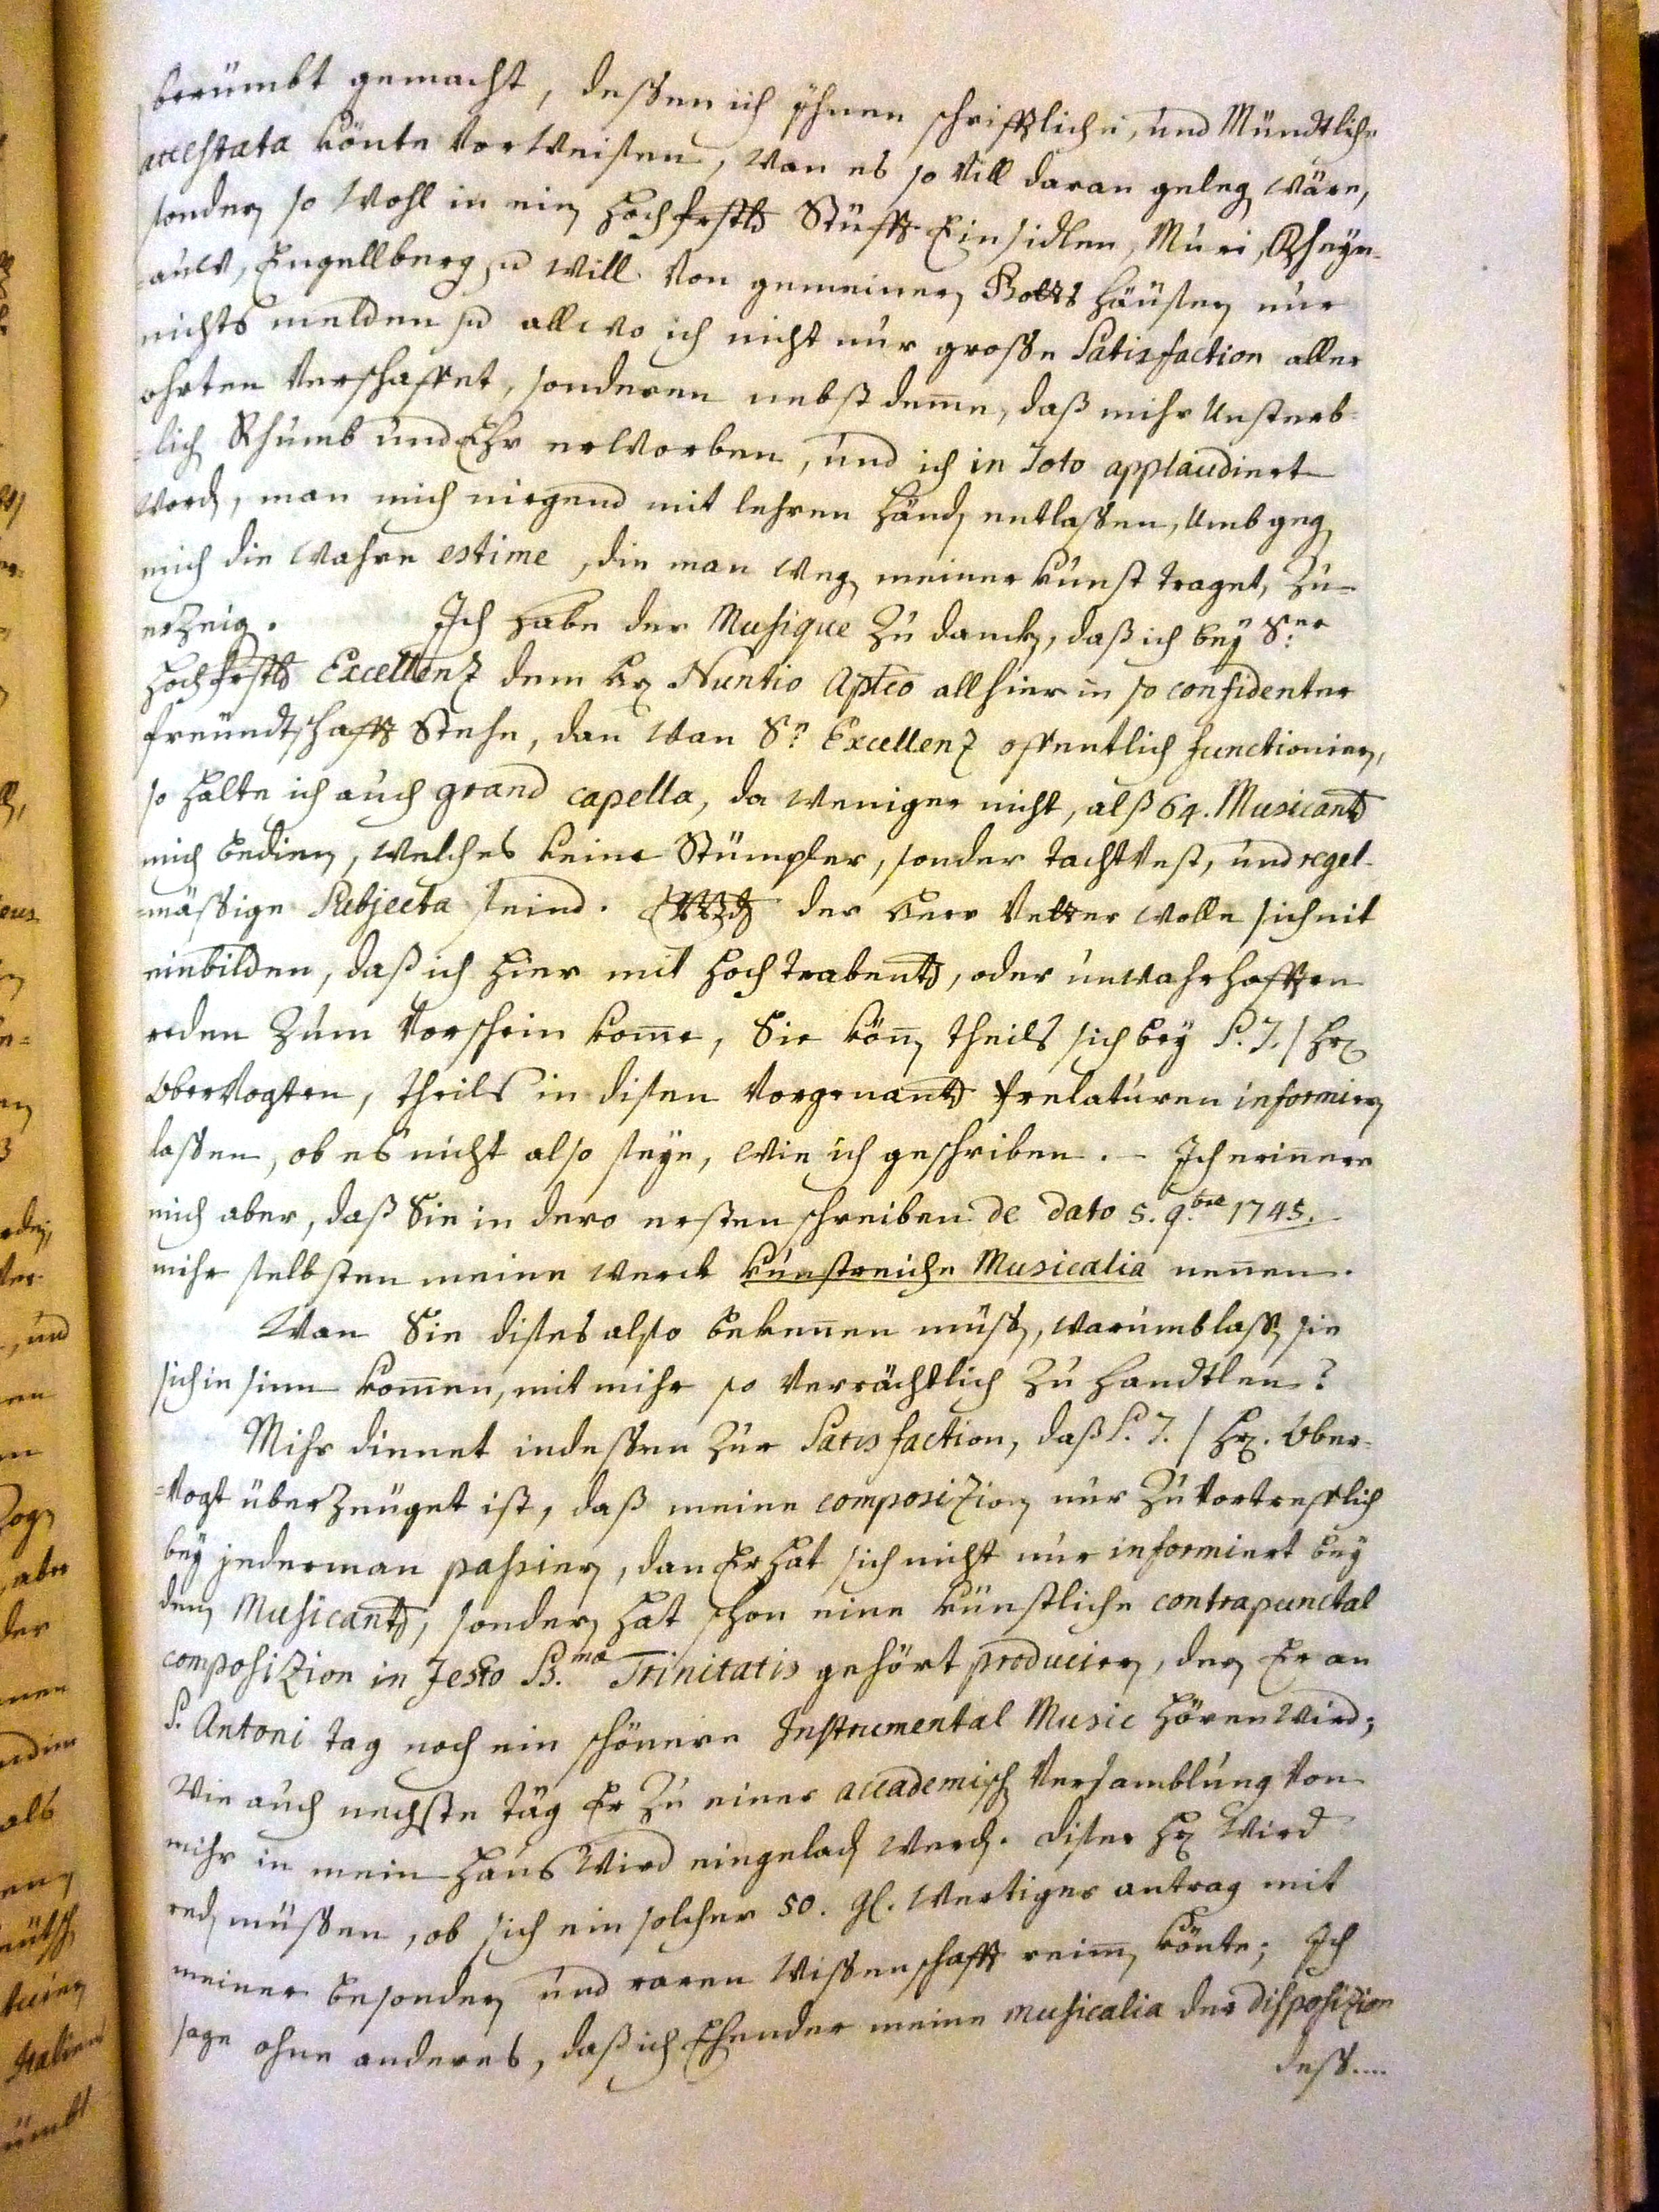 berümbt gemacht, dessen ich ÿhnen schrifftliche, und Mündtliche
attestata könte Vorweisen, wan es so Vill daran geleg wäre,
sonder so wohl in ein Hochfrstl Stüfft Einsidlen, Muri, Rheyn-
=auw, Engellberg, will Von gemeinen Gotts häuser nur
nichts melden allwo ich nicht nur grosse Satisfaction aller
ohrten Verschaffet, sonderen nebst deme, daß mihr Unsterb-
=lich Rhumb und Ehr erworben, und ich in Toto applaudiert
word, man mich niegend mit lehren händ entlassen, Umb geg
mich die wahre estime, die man weg meiner kunst traget, zu=
erzeig. Ich habe der Musique zu danck, daß ich beÿ Sr.
Hochfrstl Excellenz dem Hr Nuntio Aptco allhier in so confidenter
freündtschafft Stehe, dan wan Se. Excellenz offentlich functionier,
so halte ich auch grand capella, da weniger nicht, alß 64. Musicant
mich bedien, welches keine Stümpler, sonder tachtvest, und regel-
=mässige Subjecta seind. der Herr Vetter wolle sich nit
einbilden, daß ich hier mit hochtrabent, oder unwahrhafften
reden zum Vorschein kome, Sie kön theils sich beÿ S. T. / Hr
Obervogten, theils in disen Vorgenant Prelaturen informier
lassen, ob es nicht also seÿe, wie ich geschriben. – Ich erinnere
mich aber, daß Sie in dero ersten schreiben de dato 5. 9.bre 1745.
mihr selbsten meine werck kunstreiche Musicalia nenen.
Wan Sie dises also bekenen müss, warumb lass sie
sich in sinn komen, mit mihr so Verrächtlich zu handtlen?
Mihr dienet indessen zur Satisfaction, daß S. T. / Hr. Ober-
=Vogt überzeüget ist, daß meine composizion nur zu Vortrefflich
beÿ jederman passier, dan Er hat sich nicht nur informiert beÿ
den Musicant, sonder hat schon eine künstliche contrapunctal
composizion in Festo S.mæ Trinitatis gehört producier, der Er an
S. Antoni tag noch ein schönere Instrumental Music hören wird;
Wie auch nechste täg Er zu einer accademisch Versamblung Von
mihr in mein Haus wird eingelad werd. diser Hr wird
red müssen, ob sich ein solcher 50. gl. wertiger antrag mit
meiner besonder und raren wissenschafft reim könte; Ich
sage ohne anderes, daß ich Ehender meine musicalia der disposizion
dess....